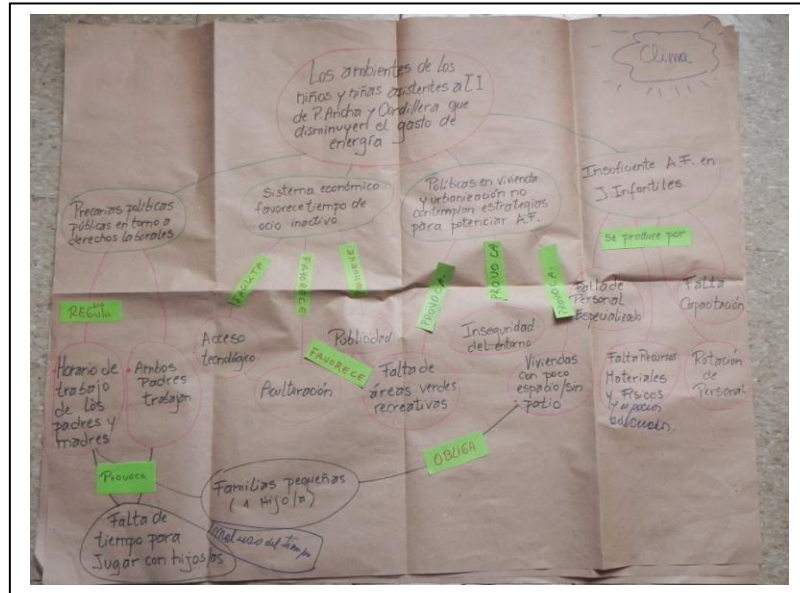 Clima
Los ambientes de los
niños y niñas asistentes a JI
de P. Ancha y Cordillera que
disminuyen el gasto de
energía
Precarias políticas
públicas en torno a
derechos laborales
Sistema económico
favorece tiempo de
ocio inactivo
Políticas en vivienda
y urbanización no
contemplan estrategias
para potenciar A.F.
Insuficiente A.F. en
J. Infantiles.
no
REGULA
FACILITA
FAVORECE
PROVOCA
PROVOCA
PROVOCA
se produce por
Horario de
trabajo
de los
padres y
madres
Ambos
Padres
trabajan
Acceso
tecnológico
Aculturación
Publicidad
FAVORECE
Falta de
áreas verdes
recreativas
Inseguridad
del entorno
Viviendas
con poco
espacio/sin
patio
Falta de
Personal
Especializado
Falta
Capacitación
Falta Recursos
Materiales
y Físicos
y espacios
Rotación
de
Personal
Provoca
OBLIGA
Familias pequeñas
(1 Hijo/a)
Falta de
tiempo para
Jugar con hijos/as
Mal uso del tiempo